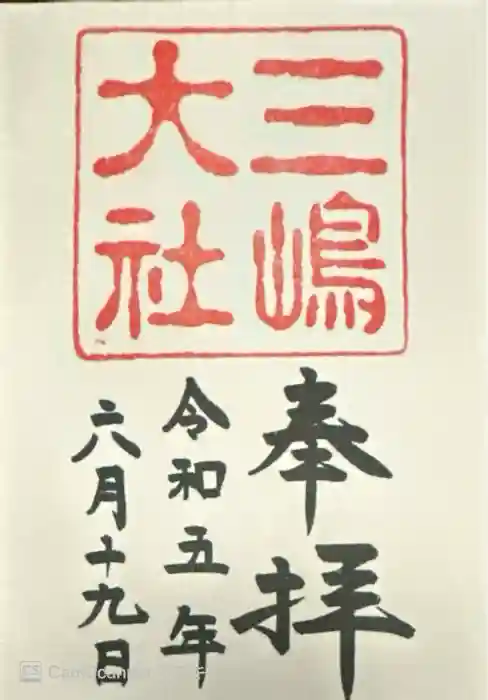 三嶋
大社
奉拝
令和五年
六月十九日
CS CamScanner